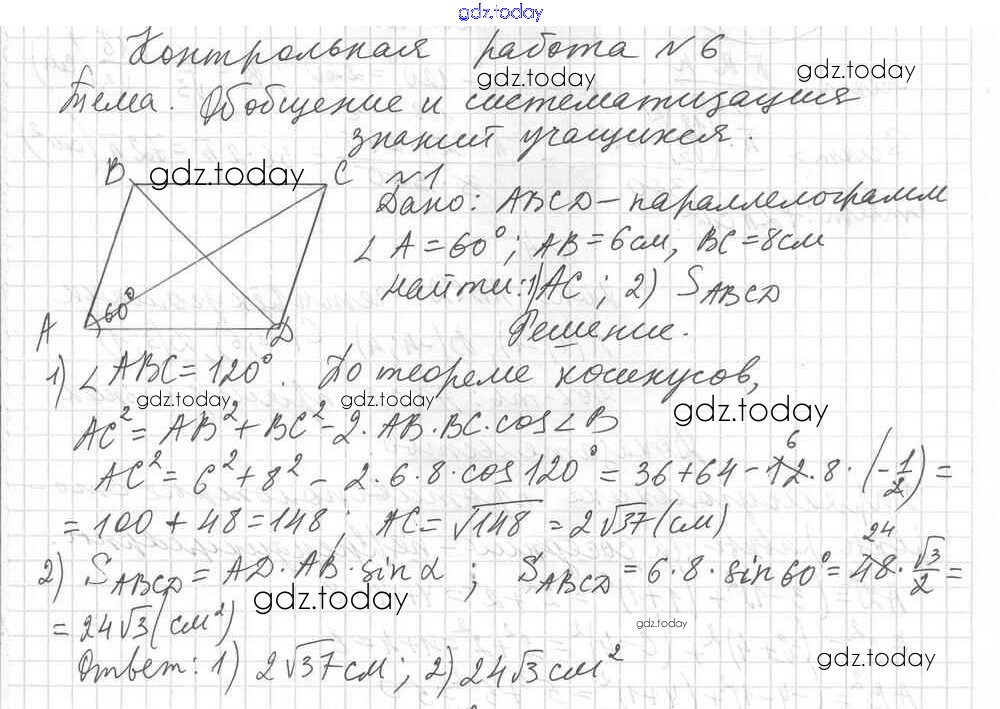 gdz.today
Контрольная работа №6
gdz.today gdz.today
Тема. Обобщение и систематизация
знаний учащихся.
B gdz.today C №1
Дано: ABCD – параллелограмм
∠A = 60°; AB = 6см, BC = 8см
найти: 1) AC; 2) S_ABCD
A 60° D Решение.
1) ∠ABC = 120°. По теореме косинусов,
gdz.today gdz.today gdz.today
AC² = AB² + BC² - 2·AB·BC·cos∠B
AC² = 6² + 8² - 2·6·8·cos120° = 36 + 64 - 12·8·(-1/2) = 6
= 100 + 48 = 148; AC = √148 = 2√37 (см)
2) S_ABCD = AD·AB·sinα; S_ABCD = 6·8·sin60° = 48·√3/2 = 24
gdz.today
= 24√3 (см²)
gdz.today
Ответ: 1) 2√37см; 2) 24√3см²
gdz.today